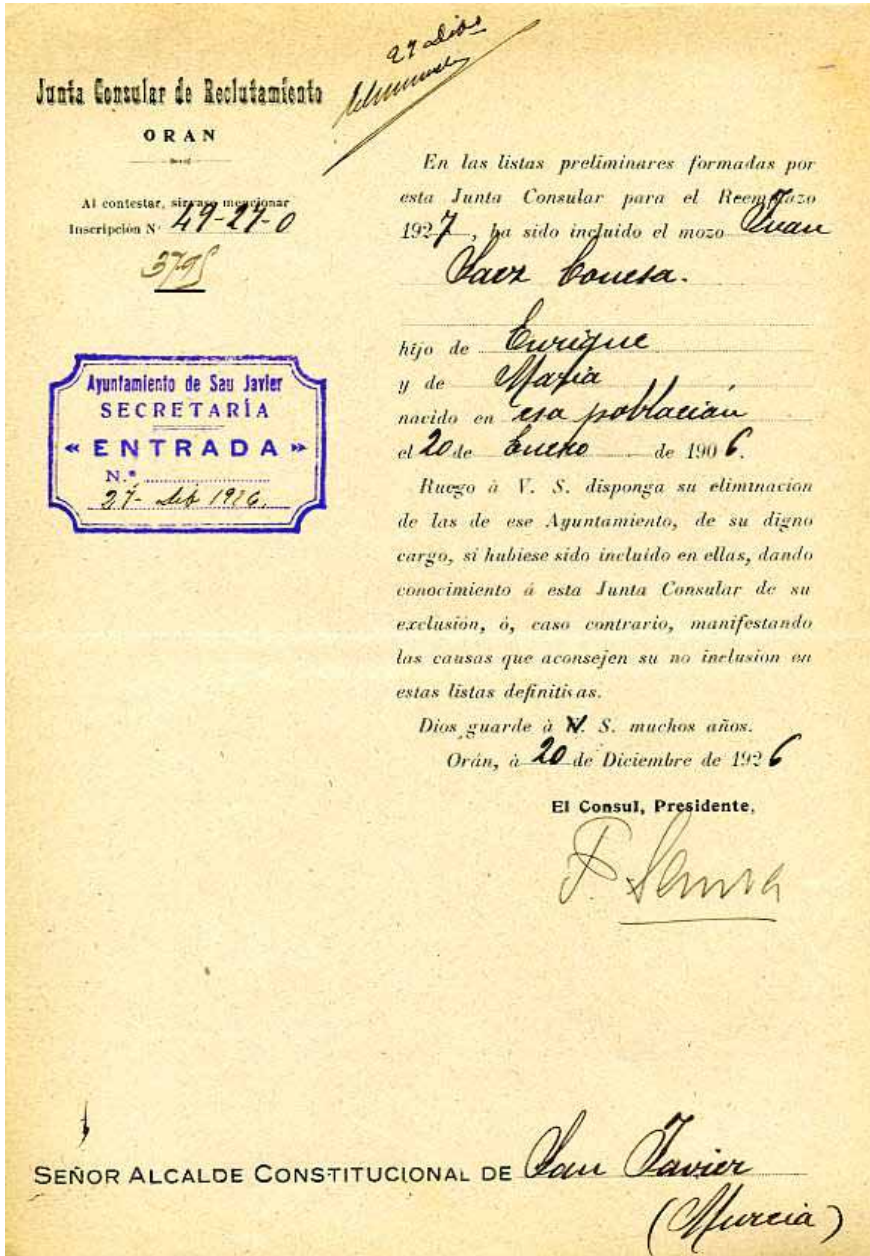 27 dibre
Junta Consular de Reclutamiento
ORAN
Al contestar, sirvase mencionar
Inscripción N· 49-27-0
3795
Ayuntamiento de San Javier
SECRETARÍA
« ENTRADA »
N.º
27- dib 1926.
En las listas preliminares formadas por
esta Junta Consular para el Reemplazo
1927, ha sido incluído el mozo Juan
Saez Conesa.
hijo de Enrique
y de Maria
nacido en esa población
el 20 de Enero de 1906.
Ruego à V. S. disponga su eliminación
de las de ese Ayuntamiento, de su digno
cargo, si hubiese sido incluído en ellas, dando
conocimiento á esta Junta Consular de su
exclusión, ò, caso contrario, manifestando
las causas que aconsejen su no inclusion en
estas listas definitivas.
Dios guarde à V. S. muchos años.
Orán, à 20 de Diciembre de 1926
El Consul, Presidente,
SEÑOR ALCALDE CONSTITUCIONAL DE San Javier
(Murcia)